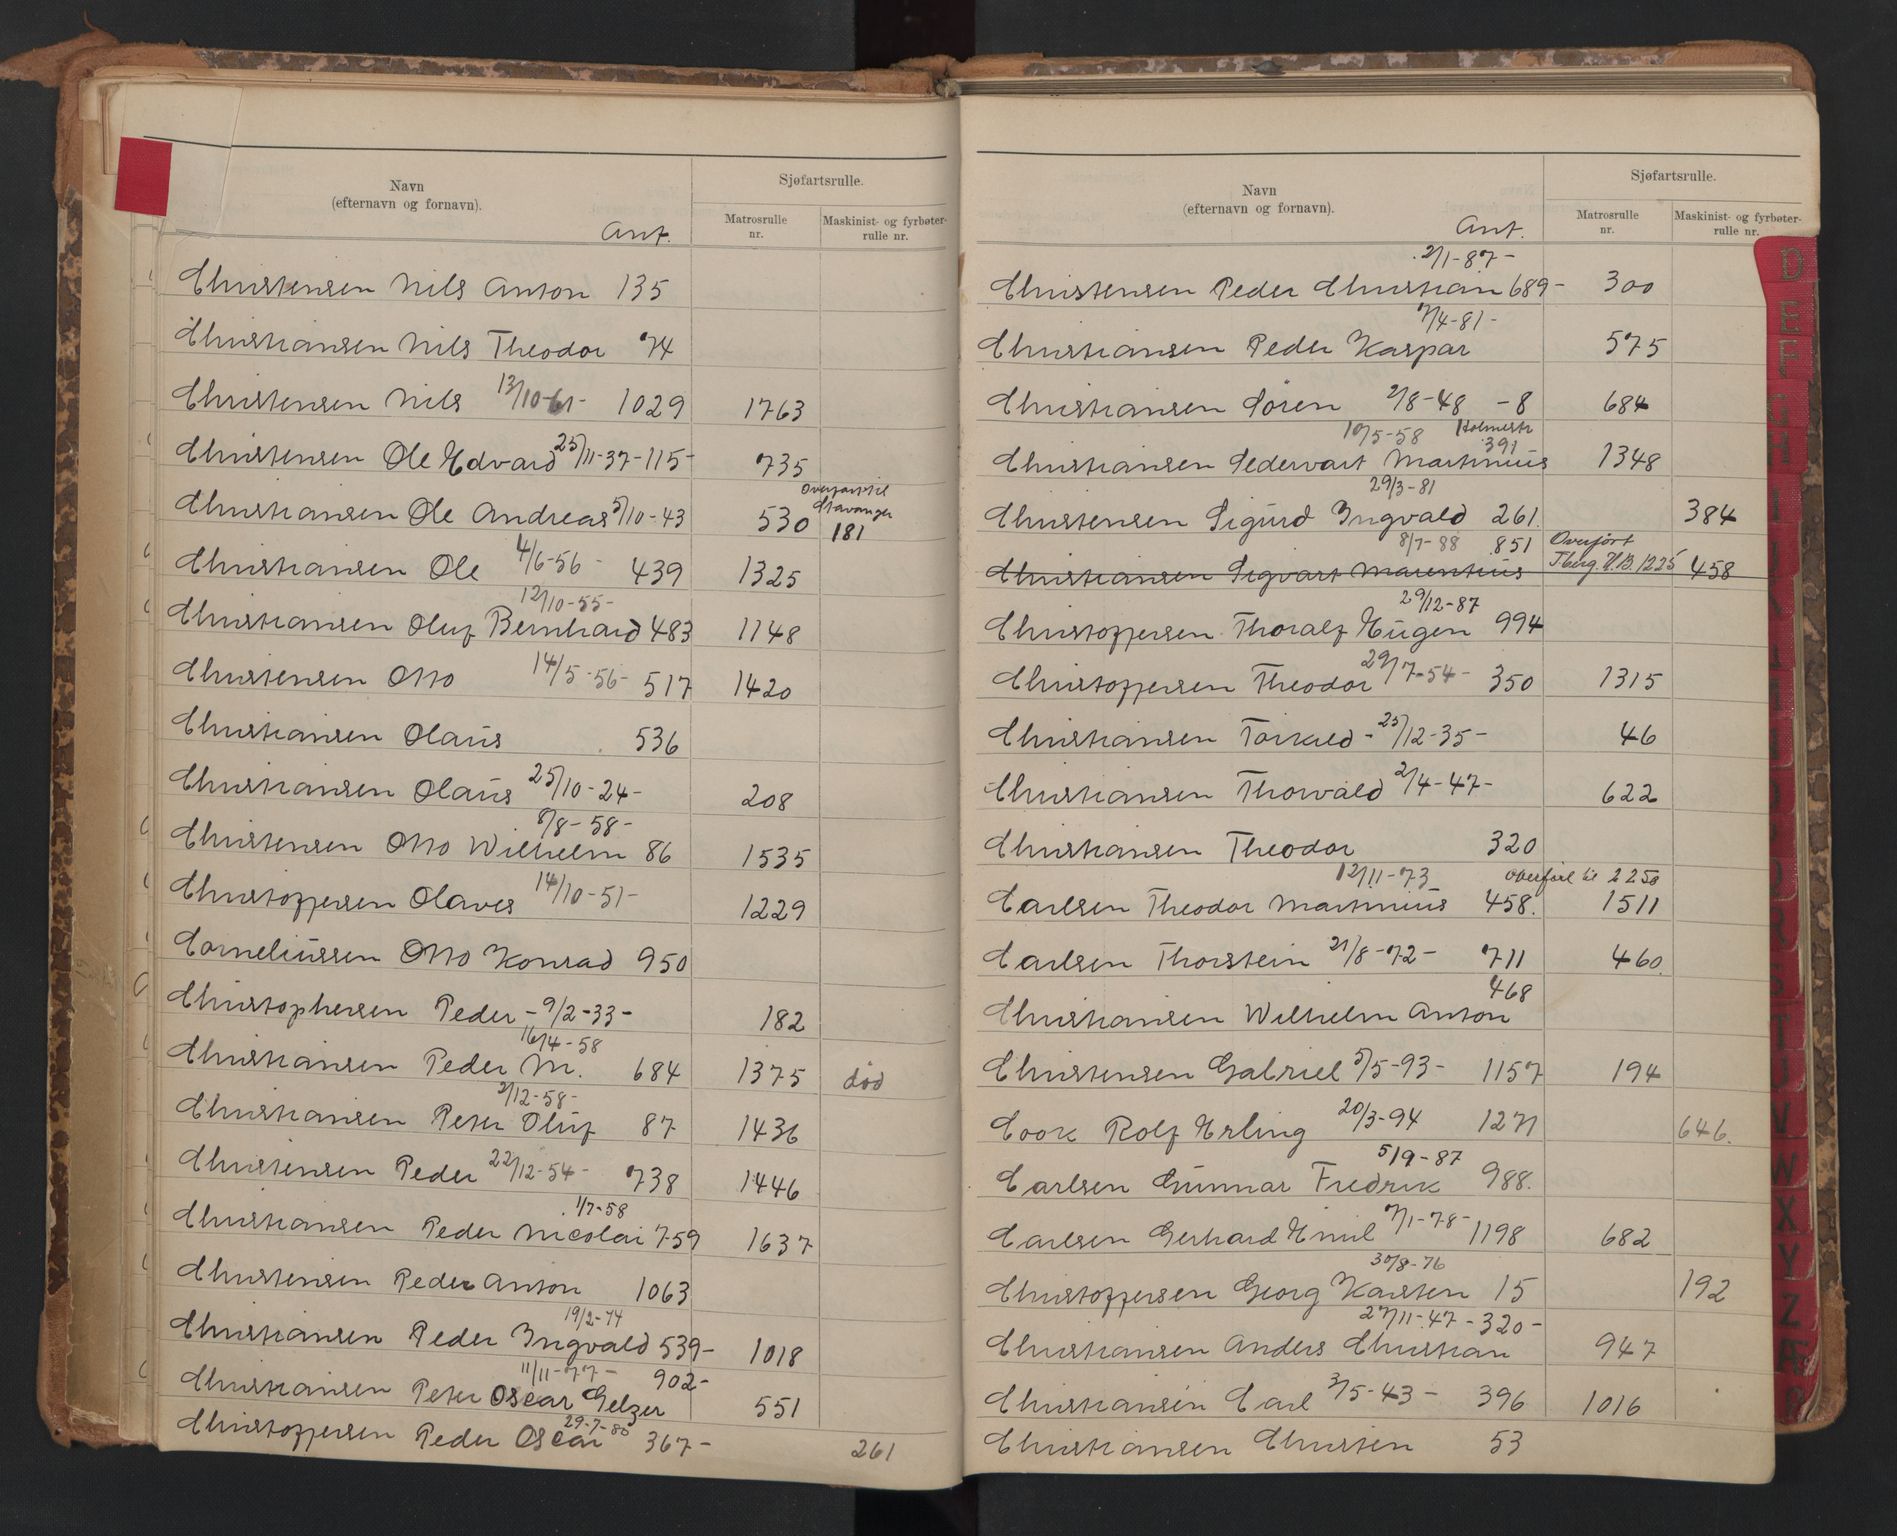 Navn
(efternavn og fornavn).
Ant.
Sjøfartsrulle.
Matrosrulle
nr.
Maskinist- og fyrbøter-
rulle nr.
Christensen Nils Anton 135
Christiansen Nils Theodor 74
Christensen Nils 13/10-61- 1029 1763
Christensen Ole Edvard 25/11-37-115- 735
Overført til
Stavanger
Christiansen Ole Andreas 5/10-43 530 181
Christiansen Ole 4/6-56- 439 1325
12/10-55-
Christiansen Oluf Bernhard 483 1148
Christensen Otto 14/5-56- 517 1420
Christiansen Olaus 536
Christiansen Olaus 25/10-24- 208
8/8-58-
Christensen Otto Wilhelm 86 1535
Christoffersen Olaves 14/10-51- 1229
Corneliussen Otto Konrad 950
Christophersen Peder -9/2-33- 182
16/4-58
Christiansen Peder M. 684 1375 død
2/12-58-
Christiansen Peter Oluf 87 1436
Christensen Peder 22/12-54- 738 1446
1/7-58
Christiansen Peder Nicolai 759 1637
Christensen Peder Anton 1063
19/2-74
Christiansen Peder Ingvald 539- 1018
11/11-77- 902-
Christiansen Peter Oscar Gelzer 551
29-7-85
Christoffersen Peder Oscar 367- 261
Navn
(efternavn og fornavn).
Ant.
Sjøfartsrulle.
Matrosrulle
nr.
Maskinist- og fyrbøter-
rulle nr.
2/1-87-
Christensen Peder Christian 689- 300
7/4-81-
Christiansen Peder Kaspar 575
Christiansen Sören 2/8-48 -8 684
10/5-58 Holmestr
391
Christiansen Sedervart Martinius 1348
29/3-81
Christensen Sigurd Ingvald 261. 384
8/7-88 851 Overført
Christiansen Sigvart Marentius Tbrg. H.B. 1225 458
29/12-87
Christoffersen Thoralf Eugen 994
Christoffersen Theodor 29/7-54- 350 1315
Christiansen Torkild - 25/12-35- 46
Christiansen Thorvald 2/4-47- 622
Christiansen Theodor 320
12/11-73 overført til 2250
Carlsen Theodor Martinius 458. 1511
Carlsen Thorstein 21/8-72- 711 460
468
Christiansen Wilhelm Anton
Christensen Gabriel 5/5-93- 1157 194
Cook Rolf Erling 20/3-94 1271 646.
5/9-87
Carlsen Gunnar Fredrik 988.
Carlsen Gerhard Emil 7/1-78- 1198 682
30/8-76
Christoffersen Georg Karsten 15 192
27/11-47-320-
Christiansen Anders Christian 947
Christiansen Carl 3/5-43- 396 1016
Christiansen Christen 53
D
E
F
G
S
T
U
V
W
X
Y
Z
Æ